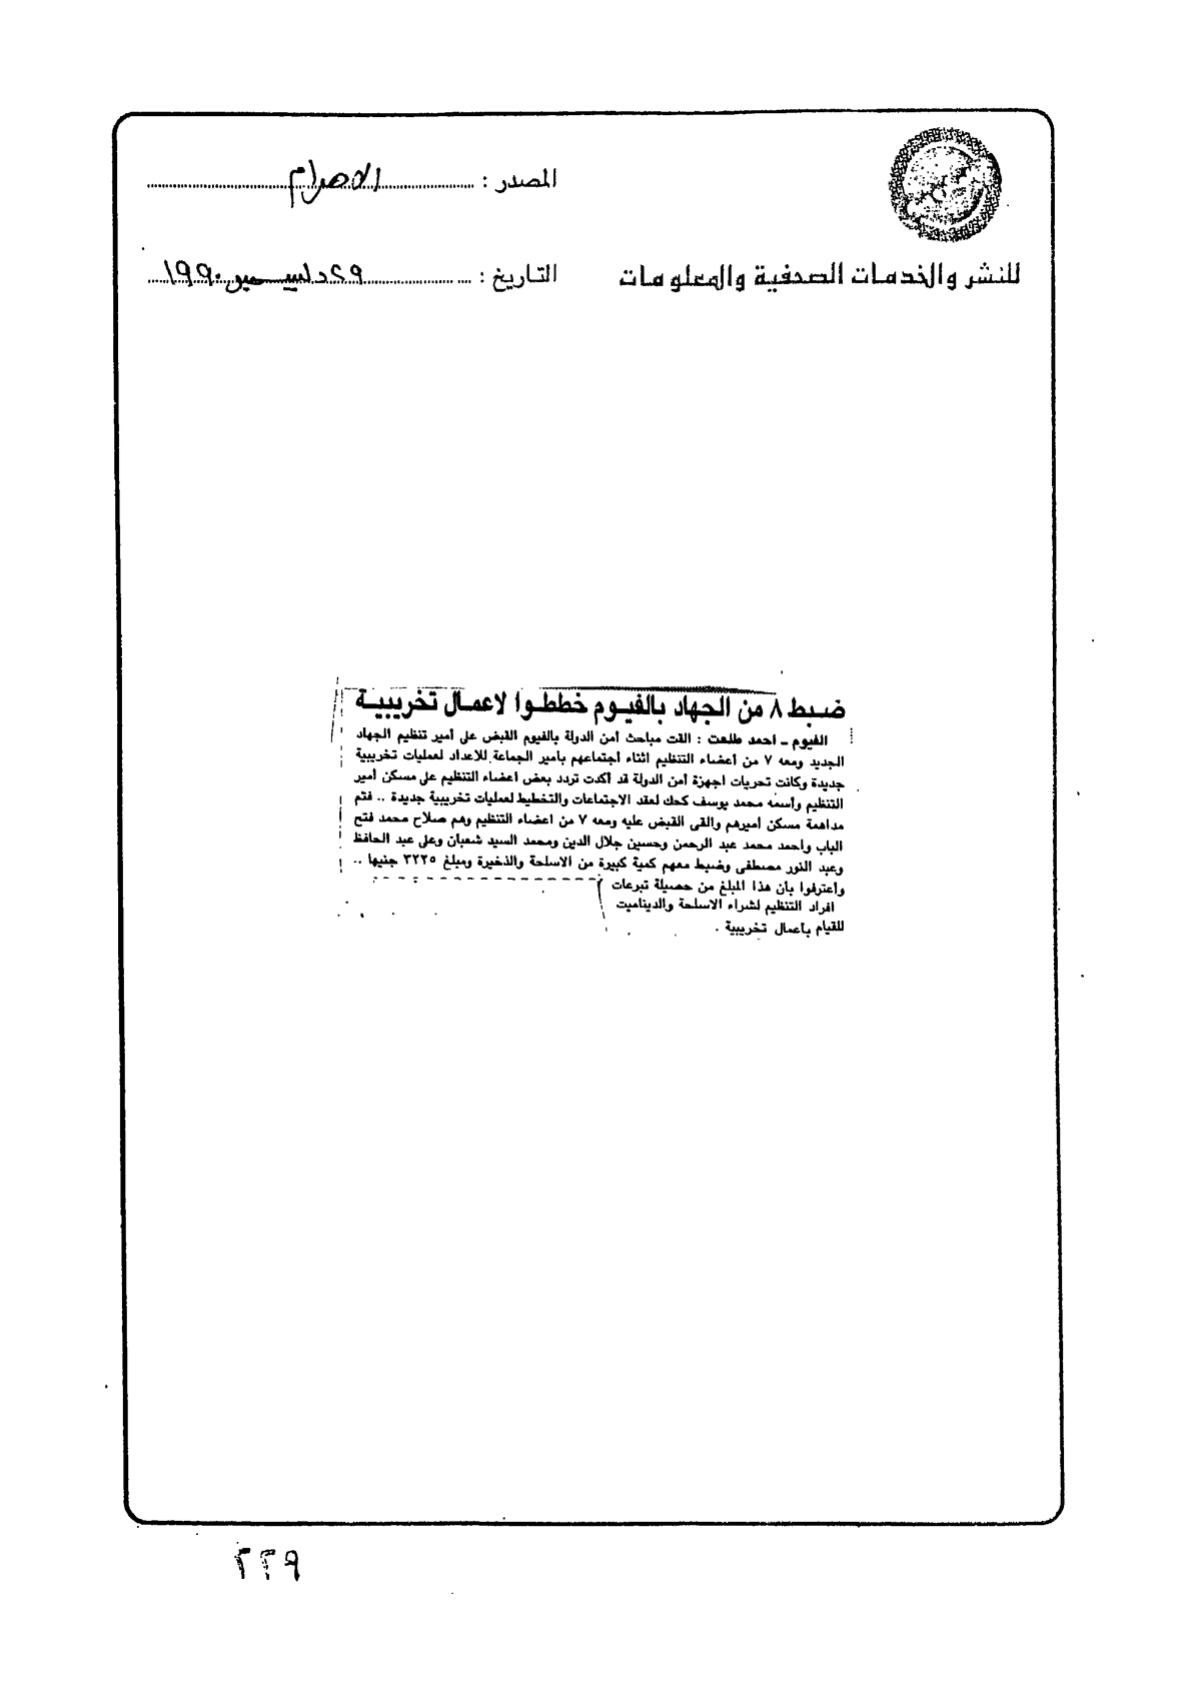 المصدر : الاهرام
للنشر والخدمات الصحفية والمعلومات
التاريخ : ٢٩ ديسمبر ١٩٩٠
ضبط ٨ من الجهاد بالفيوم خططوا لاعمال تخريبية
الفيوم ـ احمد طلعت : القت مباحث أمن الدولة بالفيوم القبض على أمير تنظيم الجهاد
الجديد ومعه ٧ من أعضاء التنظيم اثناء اجتماعهم بامير الجماعة للاعداد لعمليات تخريبية
جديدة وكانت تحريات اجهزة أمن الدولة قد أكدت تردد بعض اعضاء التنظيم على مسكن أمير
التنظيم وأسمه محمد يوسف كحك لعقد الاجتماعات والتخطيط لعمليات تخريبية جديدة .. فتم
مداهمة مسكن اميرهم والقى القبض عليه ومعه ٧ من اعضاء التنظيم وهم صلاح محمد فتح
الباب واحمد محمد عبد الرحمن وحسين جلال الدين ومحمد السيد شعبان وعلى عبد الحافظ
وعبد النور مصطفى وضبط معهم كمية كبيرة من الاسلحة والذخيرة ومبلغ ٣٢٢٥ جنيها ..
واعترفوا بأن هذا المبلغ من حصيلة تبرعات
افراد التنظيم لشراء الاسلحة والديناميت
للقيام باعمال تخريبية .